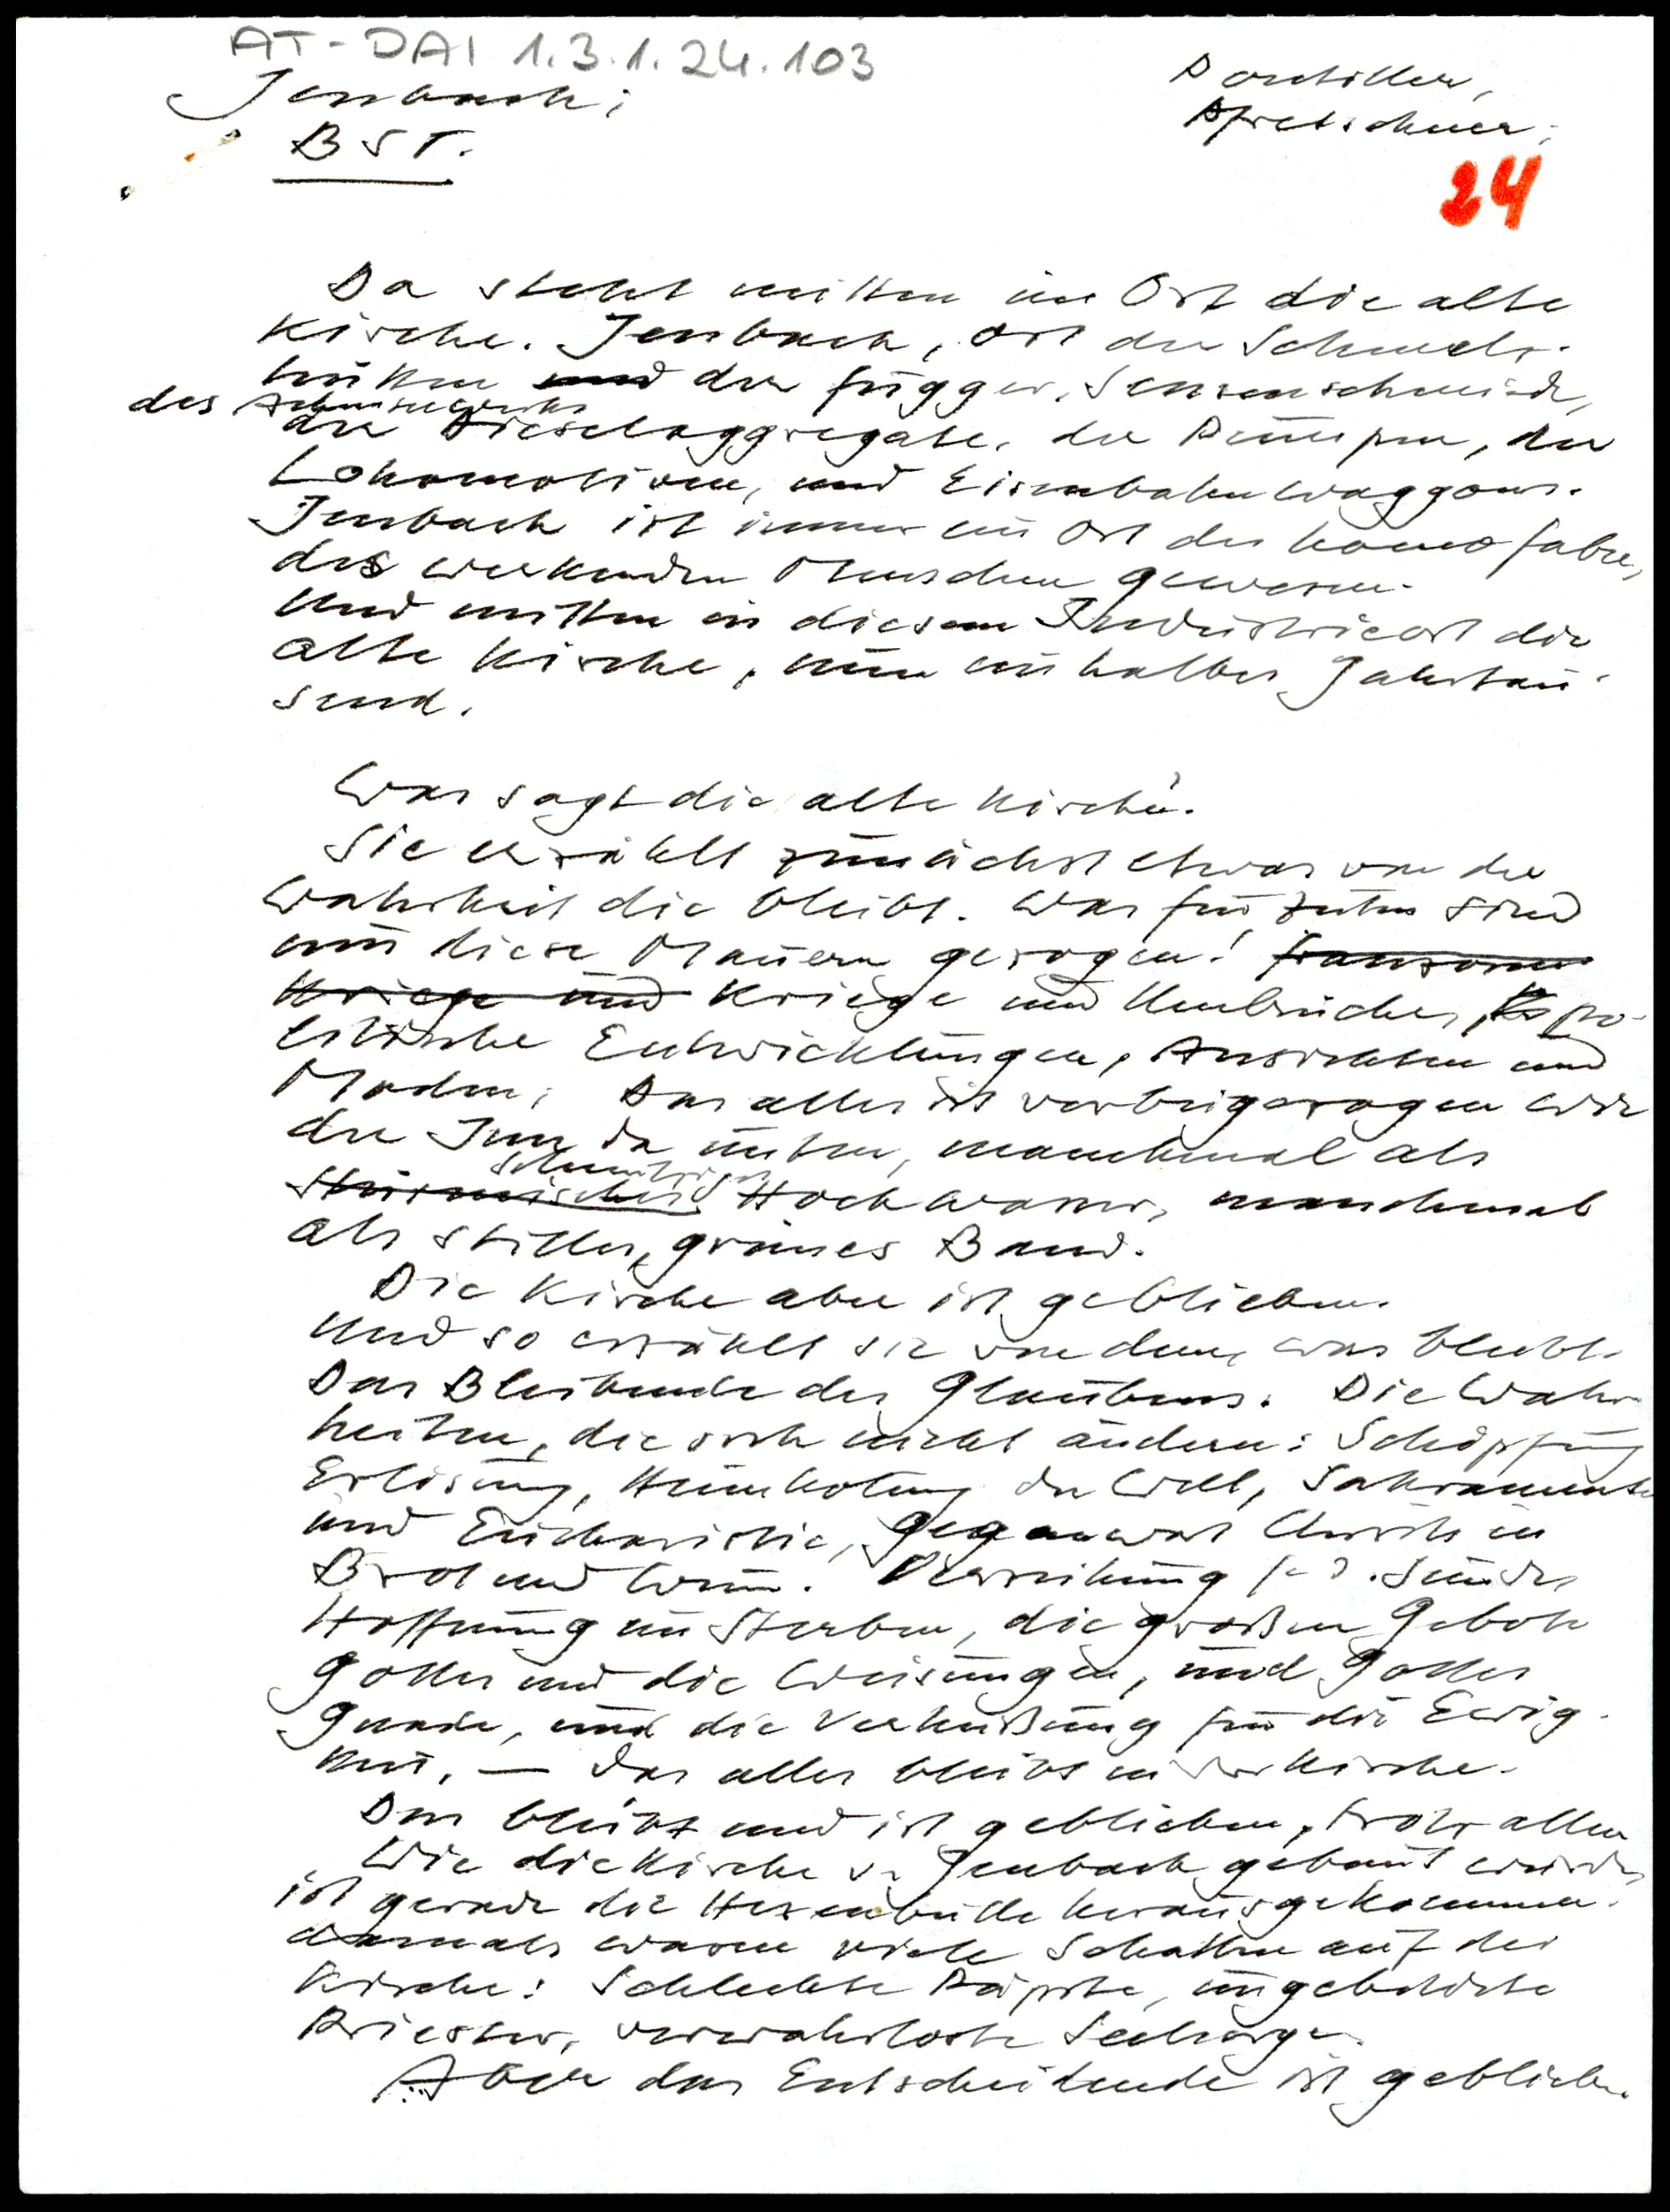 AT-DAI 1.3.1.24.103
Jenbach;
BST.
24
Da steht mitten im Ort die alte
Kirche. Jenbach, Ort der Schmelz-
hütten und der Fugger, Sensenschmiede,
des Achenseewerks
der Dieselaggregate, der Pumpen, der
Lokomotiven, und Eisenbahnwaggons.
Jenbach ist immer ein Ort des homo faber,
des werkenden Menschen gewesen.
Und mitten in diesem Industrieort die
alte Kirche, nun ein halbes Jahrtau-
send.
Was sagt die alte Kirche?
Sie erzählt zunächst etwas von der
Wahrheit die bleibt. Was für Zeiten sind
um diese Mauern gezogen!
Kriege und Kriege und Umbrüche, po-
litische Entwicklungen, Ansichten und
Moden; Das alles ist vorbeigezogen wie
der Inn da unten, manchmal als
schmutziges
stürmisches Hochwasser, manchmal
als stilles, grünes Band.
Die Kirche aber ist geblieben.
Und so erzählt sie von dem, was bleibt.
Das Bleibende des Glaubens. Die Wahr-
heiten, die sich nicht ändern: Schöpfung
Erlösung, Heimholung der Welt, Sakramente
und Eucharistie, Gegenwart Christi in
Brot und Wein. Verzeihung f. d. Sünde
Hoffnung im Sterben, die großen Gebote
Gottes und die Weisungen, und Gottes
Gnade, und die Verheißung für die Ewig-
keit, — das alles bleibt in der Kirche.
Das bleibt und ist geblieben, trotz allem
Wie die Kirche v. Jenbach gebaut wurde,
ist gerade die Hexenbulle herausgekommen.
damals waren viele Schatten auf der
Kirche: Schlechte Päpste, ungebildete
Priester, verwahrloste Seelsorge.
Aber das Entscheidende ist geblieben.